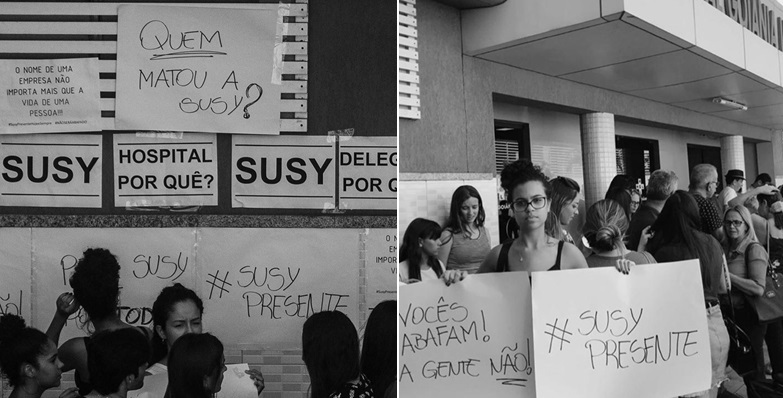 QUEM
MATOU A
SUSY?
O NOME DE UMA
EMPRESA NÃO
IMPORTA MAIS QUE A
VIDA DE UMA
PESSOA!!!
SUSY
HOSPITAL
POR QUÊ?
SUSY
DELEG
POR Q
SUSY
TOD
#SUSY
PRESENTE
GOIANIA
VOCÊS
ABAFAM!
A GENTE NÃO!
#SUSY
PRESENTE